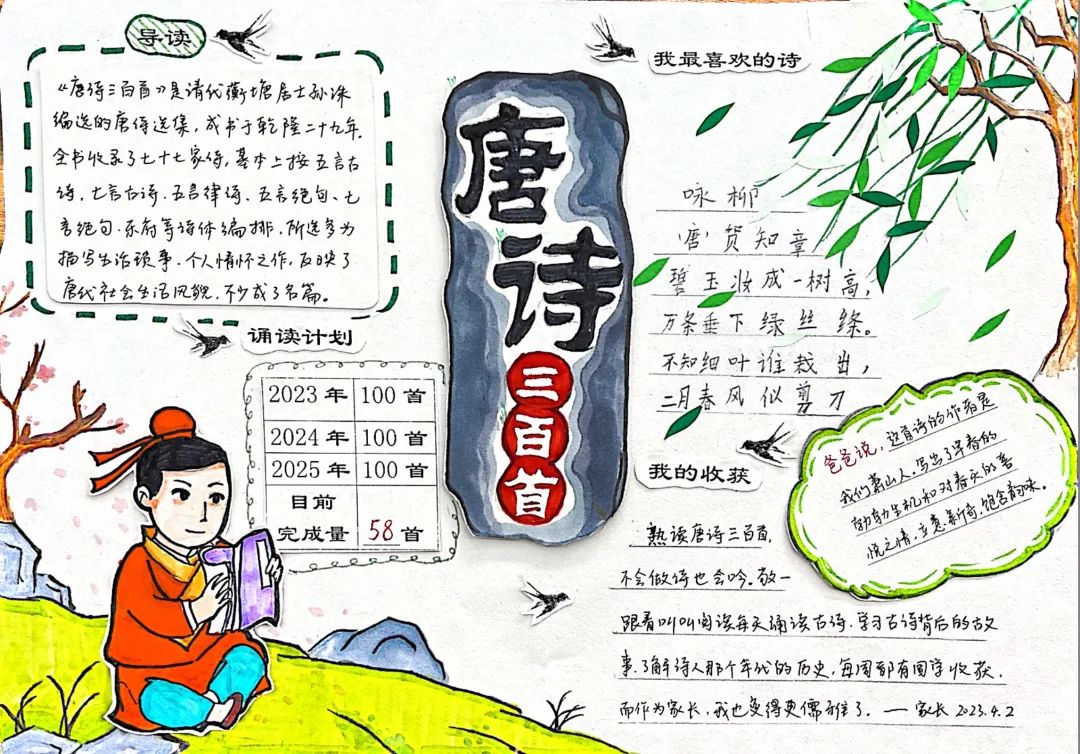 导读
《唐诗三百首》是清代蘅塘居士孙洙
编选的唐诗选集，成书于乾隆二十九年，
全书收录了七十七家诗，基本上按五言古
诗，七言古诗、五言律诗、五言绝句、七
言绝句、乐府等诗体编排，所选多为
描写生活琐事、个人情怀之作，反映了
唐代社会生活风貌，不少成了名篇。
诵读计划
2023年 100首
2024年 100首
2025年 100首
目前
完成量 58首
唐诗
三百首
我最喜欢的诗
咏柳
唐 贺知章
碧玉妆成一树高，
万条垂下绿丝绦。
不知细叶谁裁出，
二月春风似剪刀
爸爸说，这首诗的作者是
我们萧山人，写出了早春的
勃勃生机和对春天的喜
悦之情，立意新奇，饱含韵味。
我的收获
熟读唐诗三百首，
不会做诗也会吟。敬一
跟着叫叫阅读每天诵读古诗，学习古诗背后的故
事，了解诗人那个年代的历史，每周都有国学收获，
而作为家长，我也变得更儒雅了。——家长 2023.4.2